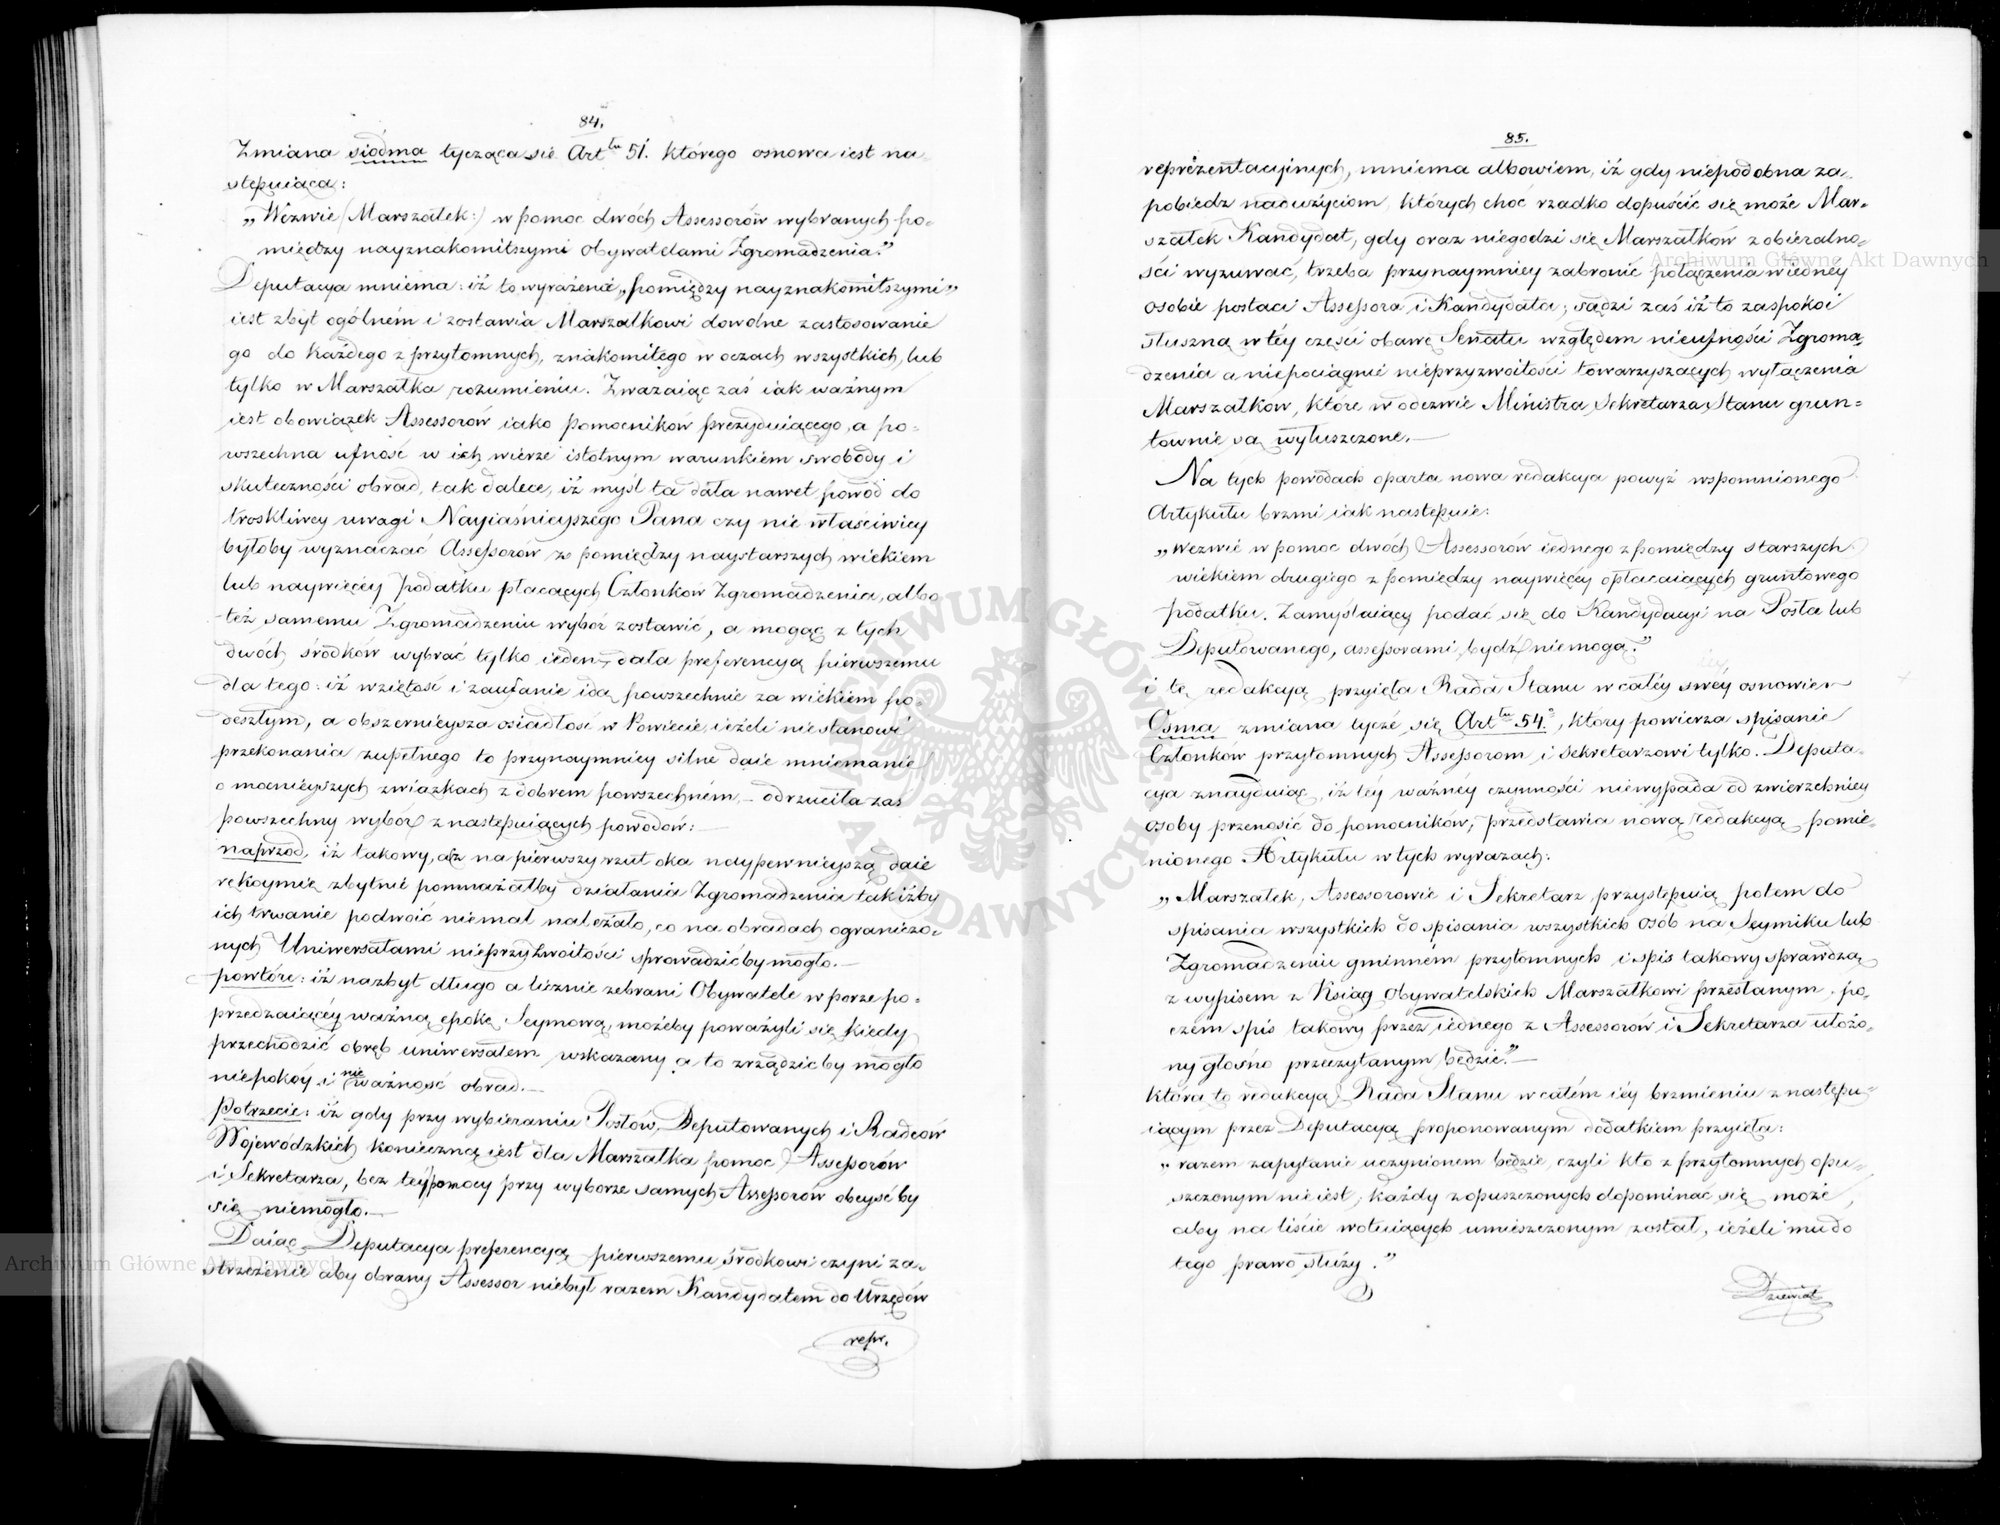 84.
Zmiana siódma tycząca się Art tu 51. którego osnowa iest na-
stępuiąca:
„Wezwie (Marszałek:) w pomoc dwóch Assessorów wybranych po-
między nayznakomitszymi Obywatelami Zgromadzenia."
Deputacya mniema: iż to wyrażenie „pomiędzy nayznakomitszymi"
iest zbyt ogólném i zostawia Marszałkowi dowolne zastosowanie
go do każdego z przytomnych, znakomitego w oczach wszystkich, lub
tylko w Marszałka rozumieniu. Zważaiąc zaś iak ważnym
iest obowiązek Assessorów iako pomocników prezyduiącego, a po-
wszechna ufność w ich wierze istotnym warunkiem swobody i
skuteczności obrad, tak dalece, iż myśl ta dała nawet powód do
troskliwey uwagi Nayiaśnieyszego Pana czy nie właściwiey
byłoby wyznaczać Assessorów z pomiędzy naystarszych wiekiem
lub naywięcey podatku płacących Członków Zgromadzenia, albo
też samemu Zgromadzeniu wybór zostawić, a mogąc z tych
dwóch środków wybrać tylko ieden, dała preferencyą pierwszemu
dla tego: iż wziętość i zaufanie idą powszechnie za wiekiem po-
deszłym, a obszernieysza osiadłość w Powiecie, ieżeli nie stanowi
przekonania zupełnego to przynaymniey silne daie mniemanie
o mocnieyszych związkach z dobrem powszechném, – odrzuciła zaś
powszechny wybór z następuiących powodów: –
naprzód, iż takowy, acz na pierwszy rzut oka naypewnieyszą daie
rękoymię zbytnie pomnażałby działania Zgromadzenia tak iżby
ich trwanie podwoić niemal należało, co na obradach ograniczo-
nych Uniwersałami nieprzyzwoitości sprowadzićby mogło. –
powtóre: iż nazbyt długo a licznie zebrani Obywatele w porze po-
przedzaiącéy ważną epokę Seymową, możeby poważyli się kiedy
przechodzić obręb uniwersałem wskazany a to zrządzićby mogło
niepokóy i nieważność obrad. –
Potrzecie: iż gdy przy wybieraniu Posłów, Deputowanych i Radców
Wojewódzkich konieczną iest dla Marszałka pomoc Assessorów
i Sekretarza, bez téy pomocy przy wyborze samych Assessorów obeyść by
się niemogło. –
Daiąc Deputacya preferencyą pierwszemu środkowi czyni za-
strzeżenie aby obrany Assessor niebył razem Kandydatem do Urzędów
repr.
85.
reprezentacyinych, mniema albowiem, iż gdy niepodobna za-
pobiedz nadużyciom, których choć rzadko dopuścić się może Mar-
szałek Kandydat, gdy oraz niegodzi się Marszałków z obieralno-
ści wyzuwać, trzeba przynaymniey zabronić połączenia w iedney
osobie postaci Assessora i Kandydata; sądzi zaś iż to zaspokoi
słuszną w téy części obawę Senatu względem nieufności Zgroma-
dzenia a niepociągnie nieprzyzwoitości towarzyszących wyłączenia
Marszałków, które w odezwie Ministra Sekretarza Stanu grun-
townie są wyłuszczone. –
Na tych powodach oparta nowa redakcya powyż wspomnionego
Artykułu brzmi iak następuie:
„Wezwie w pomoc dwóch Assessorów iednego z pomiędzy starszych
wiekiem drugiego z pomiędzy naywięcey opłacaiących gruntowego
podatku. Zamyślaiący podać się do Kandydacyi na Posła lub
Deputowanego, assessorami bydź niemogą."
i tę redakcyą przyięła Rada Stanu w całéy swéy osnowie
Osma zmiana tycze się Art tu 54.º, który powierza spisanie
Członków przytomnych Assessorom i Sekretarzowi tylko. Deputa-
cya znayduiąc, iż téy ważnéy czynności niewypada od zwierzchniey
osoby przenosić do pomocników, przedstawia nową redakcyą pomie-
nionego Artykułu w tych wyrazach:
„Marszałek, Assessorowie i Sekretarz przystępuią potem do
spisania wszystkich do spisania wszystkich osób na Seymiku lub
Zgromadzeniu gminnem przytomnych i spis takowy sprawdzą
z wypisem z Ksiąg Obywatelskich Marszałkowi przesłanym, po-
czém spis takowy przez iednego z Assessorów i Sekretarza ułożo-
ny głośno przeczytanym będzie." –
którą to redakcyą Rada Stanu w całém iéy brzmieniu z następu-
iącym przez Deputacyą proponowanym dodatkiem przyięła:
„razem zapytanie uczynionem będzie, czyli kto z przytomnych opu-
szczonym nie iest, każdy z opuszczonych dopominać się może,
aby na liście wotuiących umieszczonym został, ieżeli mu do
tego prawo służy."
Dziewiąt
Archiwum Główne Akt Dawnych
Archiwum Główne Akt Dawnych
ARCHIWUM GŁÓWNE AKT DAWNYCH